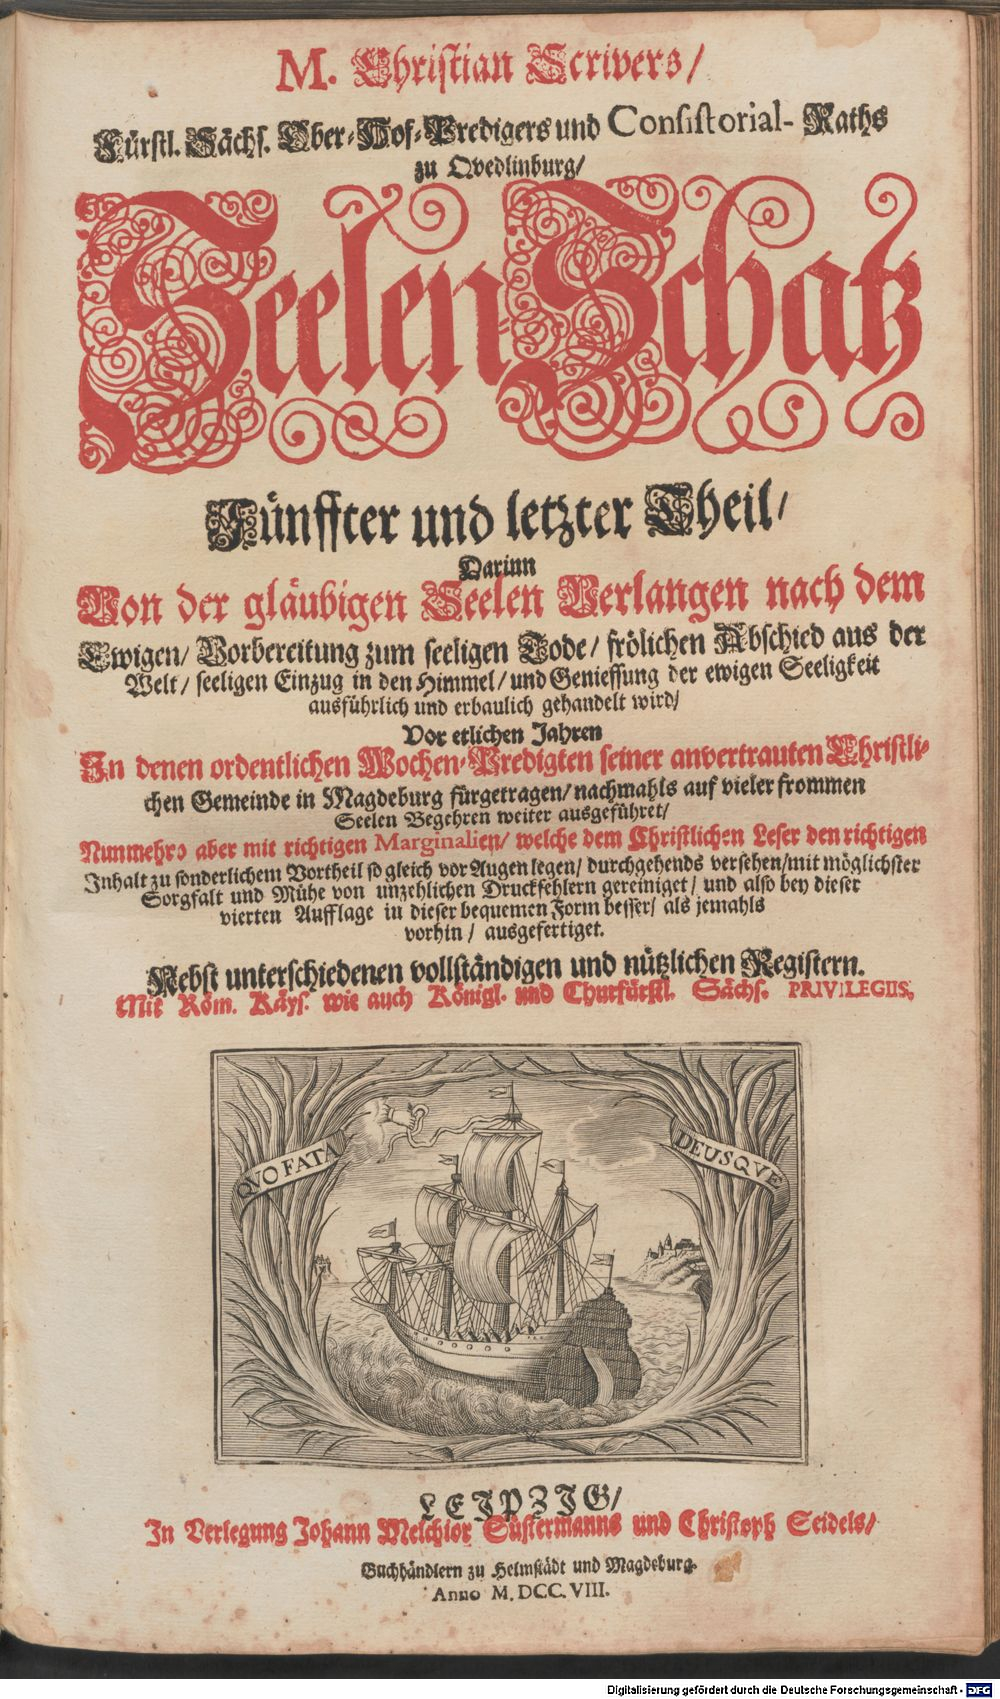 M. Christian Scrivers/
Fürstl. Sächs. Ober-Hof-Predigers und Consistorial- Raths
zu Qvedlinburg/
Seelen-Schatz
Fünffter und letzter Theil/
Darinn
Von der gläubigen Seelen Verlangen nach dem
Ewigen/ Vorbereitung zum seeligen Tode/ frölichen Abschied aus der
Welt/ seeligen Einzug in den Himmel/ und Geniessung der ewigen Seeligkeit
ausführlich und erbaulich gehandelt wird/
Vor etlichen Jahren
In denen ordentlichen Wochen-Predigten seiner anvertrauten Christli-
chen Gemeinde in Magdeburg fürgetragen/ nachmahls auf vieler frommen
Seelen Begehren weiter ausgeführet/
Nunmehro aber mit richtigen Marginalien/ welche dem Christlichen Leser den richtigen
Inhalt zu sonderlichem Vortheil so gleich vor Augen legen/ durchgehends versehen/ mit möglichster
Sorgfalt und Mühe von unzehlichen Druckfehlern gereiniget/ und also bey dieser
vierten Aufflage in dieser bequemen Form besser/ als jemahls
vorhin/ ausgefertiget.
Nebst unterschiedenen vollständigen und nützlichen Registern.
Mit Röm. Käys. wie auch Königl. und Churfürstl. Sächs. PRIVILEGIIS.
QVO FATA
DEUSQVE
LEIPZIG/
In Verlegung Johann Melchior Süstermanns und Christoph Seidels/
Buchhändlern zu Helmstädt und Magdeburg.
Anno M. DCC. VIII.
Digitalisierung gefördert durch die Deutsche Forschungsgemeinschaft - DFG